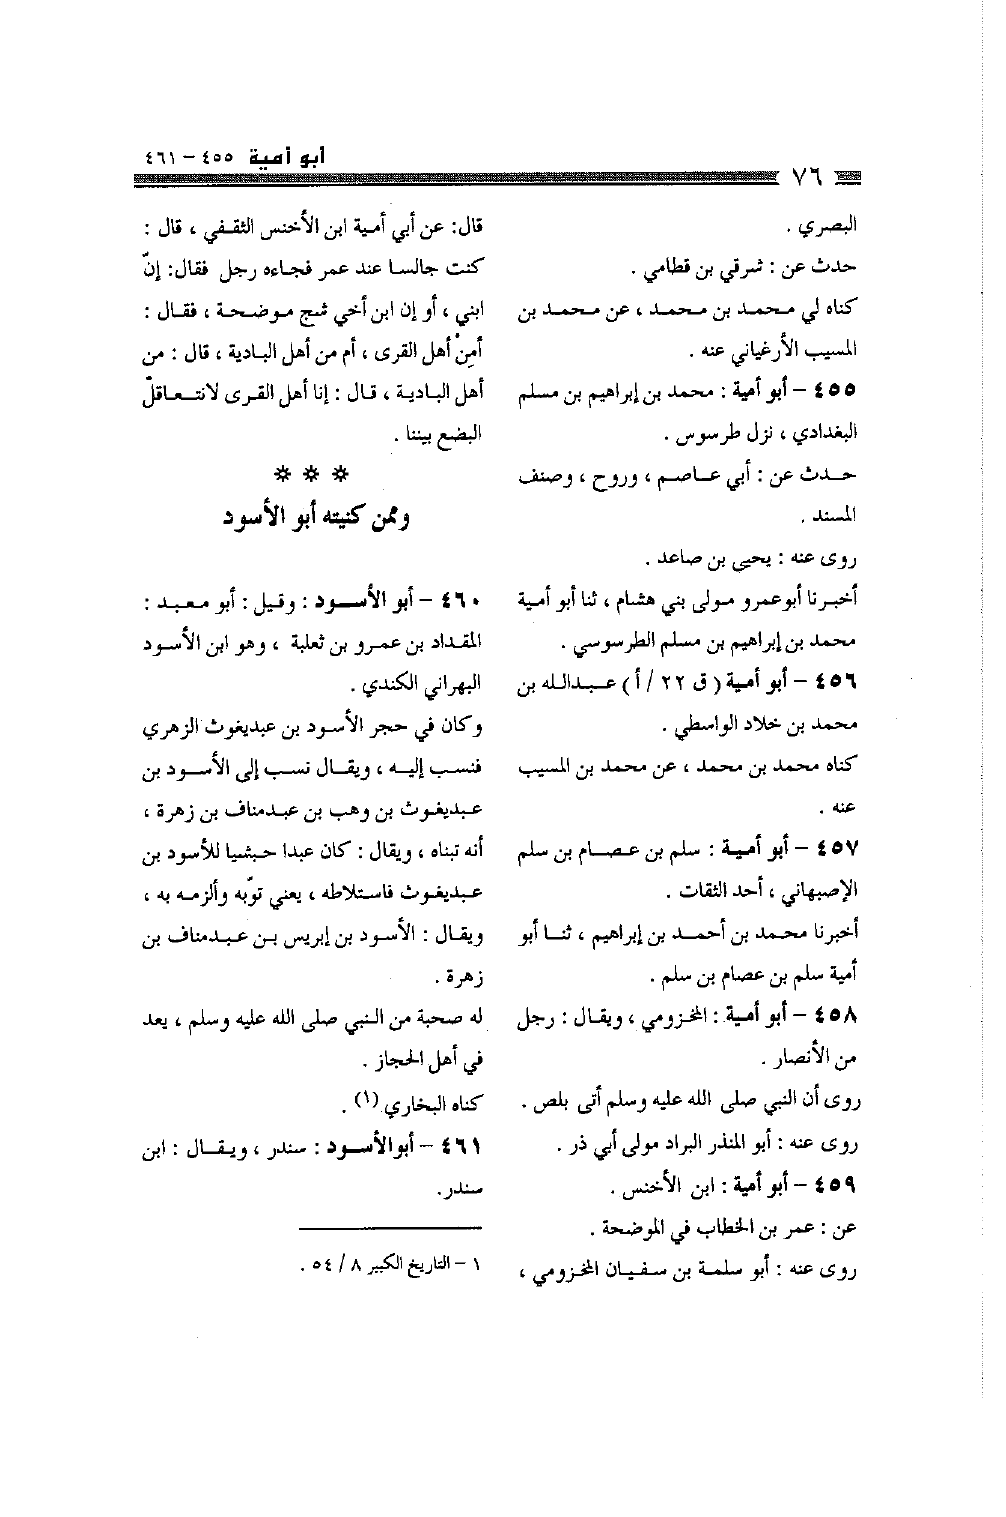 أبو أمية ٤٥٥ – ٤٦١
٧٦
البصري .
حدث عن : شرقي بن قطامي .
كناه لي محمد بن محمد ، عن محمد بن
المسيب الأرغياني عنه .
٤٥٥ – أبو أمية : محمد بن إبراهيم بن مسلم
البغدادي ، نزل طرسوس .
حدث عن : أبي عاصم ، وروح ، وصنف
المسند .
روى عنه : يحيى بن صاعد .
أخبرنا أبو عمرو مولى بني هشام ، ثنا أبو أمية
محمد بن إبراهيم بن مسلم الطرسوسي .
٤٥٦ – أبو أمية ( ق ٢٢ / أ ) عبدالله بن
محمد بن خلاد الواسطي .
كناه محمد بن محمد ، عن محمد بن المسيب
عنه .
٤٥٧ – أبو أمية : سلم بن عصام بن سلم
الإصبهاني ، أحد الثقات .
أخبرنا محمد بن أحمد بن إبراهيم ، ثنا أبو
أمية سلم بن عصام بن سلم .
٤٥٨ – أبو أمية : المخزومي ، ويقال : رجل
من الأنصار .
روى أن النبي صلى الله عليه وسلم أتى بلص .
روى عنه : أبو المنذر البراد مولى أبي ذر .
٤٥٩ – أبو أمية : ابن الأخنس .
عن : عمر بن الخطاب في الموضحة .
روى عنه : أبو سلمة بن سفيان المخزومي ،
قال: عن أبي أمية ابن الأخنس الثقفي ، قال :
كنت جالسا عند عمر فجاءه رجل فقال: إنّ
ابني ، أو إن ابن أخي شج موضحة ، فقال :
أمِنْ أهل القرى ، أم من أهل البادية ، قال : من
أهل البادية ، قال : إنا أهل القرى لانتعاقلّ
البضع بيننا .
* * *
وممن كنيته أبو الأسود
٤٦٠ – أبو الأسود : وقيل : أبو معبد :
المقداد بن عمرو بن ثعلبة ، وهو ابن الأسود
البهراني الكندي .
وكان في حجر الأسود بن عبديغوث الزهري
فنسب إليه ، ويقال نسب إلى الأسود بن
عبديغوث بن وهب بن عبدمناف بن زهرة ،
أنه تبناه ، ويقال : كان عبدا حبشيا للأسود بن
عبديغوث فاستلاطه ، يعني توّبه وألزمه به ،
ويقال : الأسود بن إبريس بن عبدمناف بن
زهرة .
له صحبة من النبي صلى الله عليه وسلم ، يعد
في أهل الحجاز .
كناه البخاري (١) .
٤٦١ – أبوالأسود : سندر ، ويقال : ابن
سندر.
١ – التاريخ الكبير ٨ / ٥٤ .